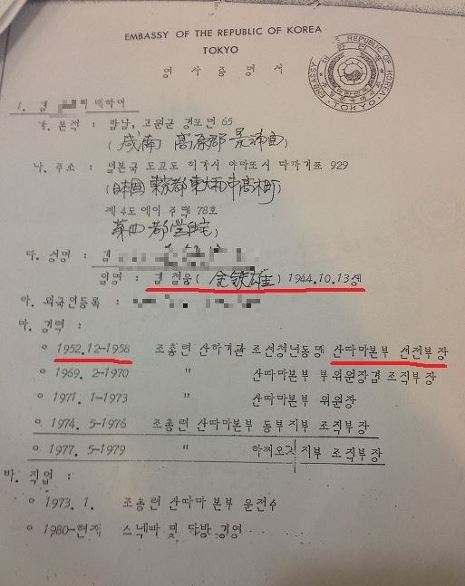 EMBASSY OF THE REPUBLIC OF KOREA
TOKYO
영 사 증 명 서
1. 김
가. 본적 : 함남, 고원군 경포면 65
(咸南 高原郡 景浦面)
나. 주소 : 일본국 도쿄도 히가시 야마또시 다가기쪼 929
(日本国 東京都 東大和市 高木町)
제 4도 에이 주택 78호
第四 都営住宅)
다. 성명 : 김
일명 : 김 철웅 (金鉄雄) 1944.10.13생
라. 외국인등록 :
마. 경력 :
o 1952.12-1958 조총련 산하기관 조선청년동맹 산따마본부 선전부장
o 1969. 2-1970 " 산따마본부 부위원장겸 조직부장
o 1971. 1-1973 " 산따마본부 위원장
o 1974. 5-1976 조총련 산따마본부 동부지부 조직부장
o 1977. 5-1979 " 하찌오지 지부 조직부장
바. 직업 :
o 1973. 1. 조총련 산따마 본부 운전수
o 1980-현재 스넥빠 및 다방 경영